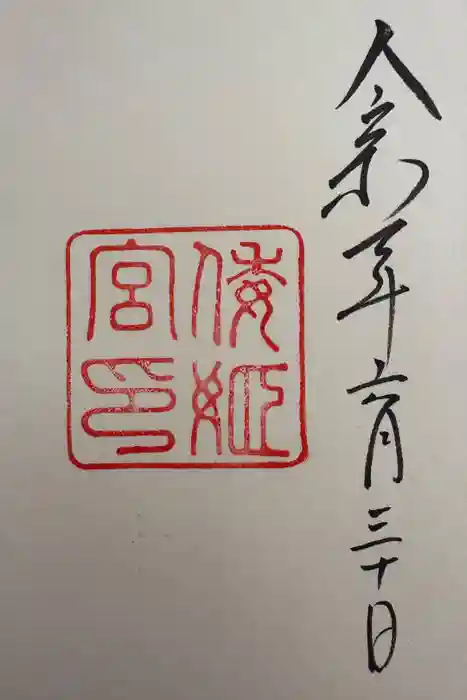 令和元年六月三十日
倭姫
宮印